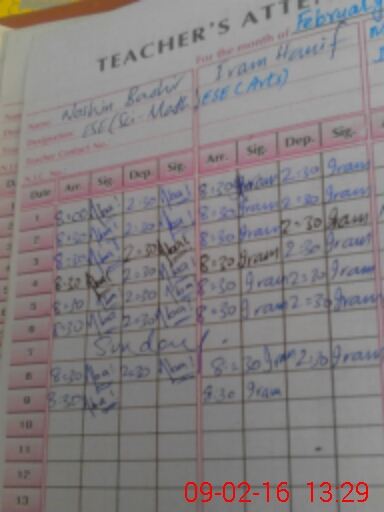 TEACHER'S ATTE
For the month of February
Name Noshin Bashir Iram Hanif
Designation ESE (Sci-Math) ESE (Arts)
Teacher Contact No.
N.I.C. No.
Date Arr. Sig. Dep. Sig. Arr. Sig. Dep. Sig.
1 8:00 2:30 8:30 Iram 2:30 Iram
2 8:30 2:30 8:30 Iram 2:30 Iram
3 8:30 2:30 8:30 Iram 2:30 Iram
4 8:30 2:30 8:30 Iram 2:30 Iram
5 8:30 2:30 8:30 Iram 2:30 Iram
6 8:30 2:30
7 Sunday
8 8:30 2:30 8:30 Iram 2:30 Iram
9 8:30 8:30 Iram
10
11
12
13
09-02-16 13:29